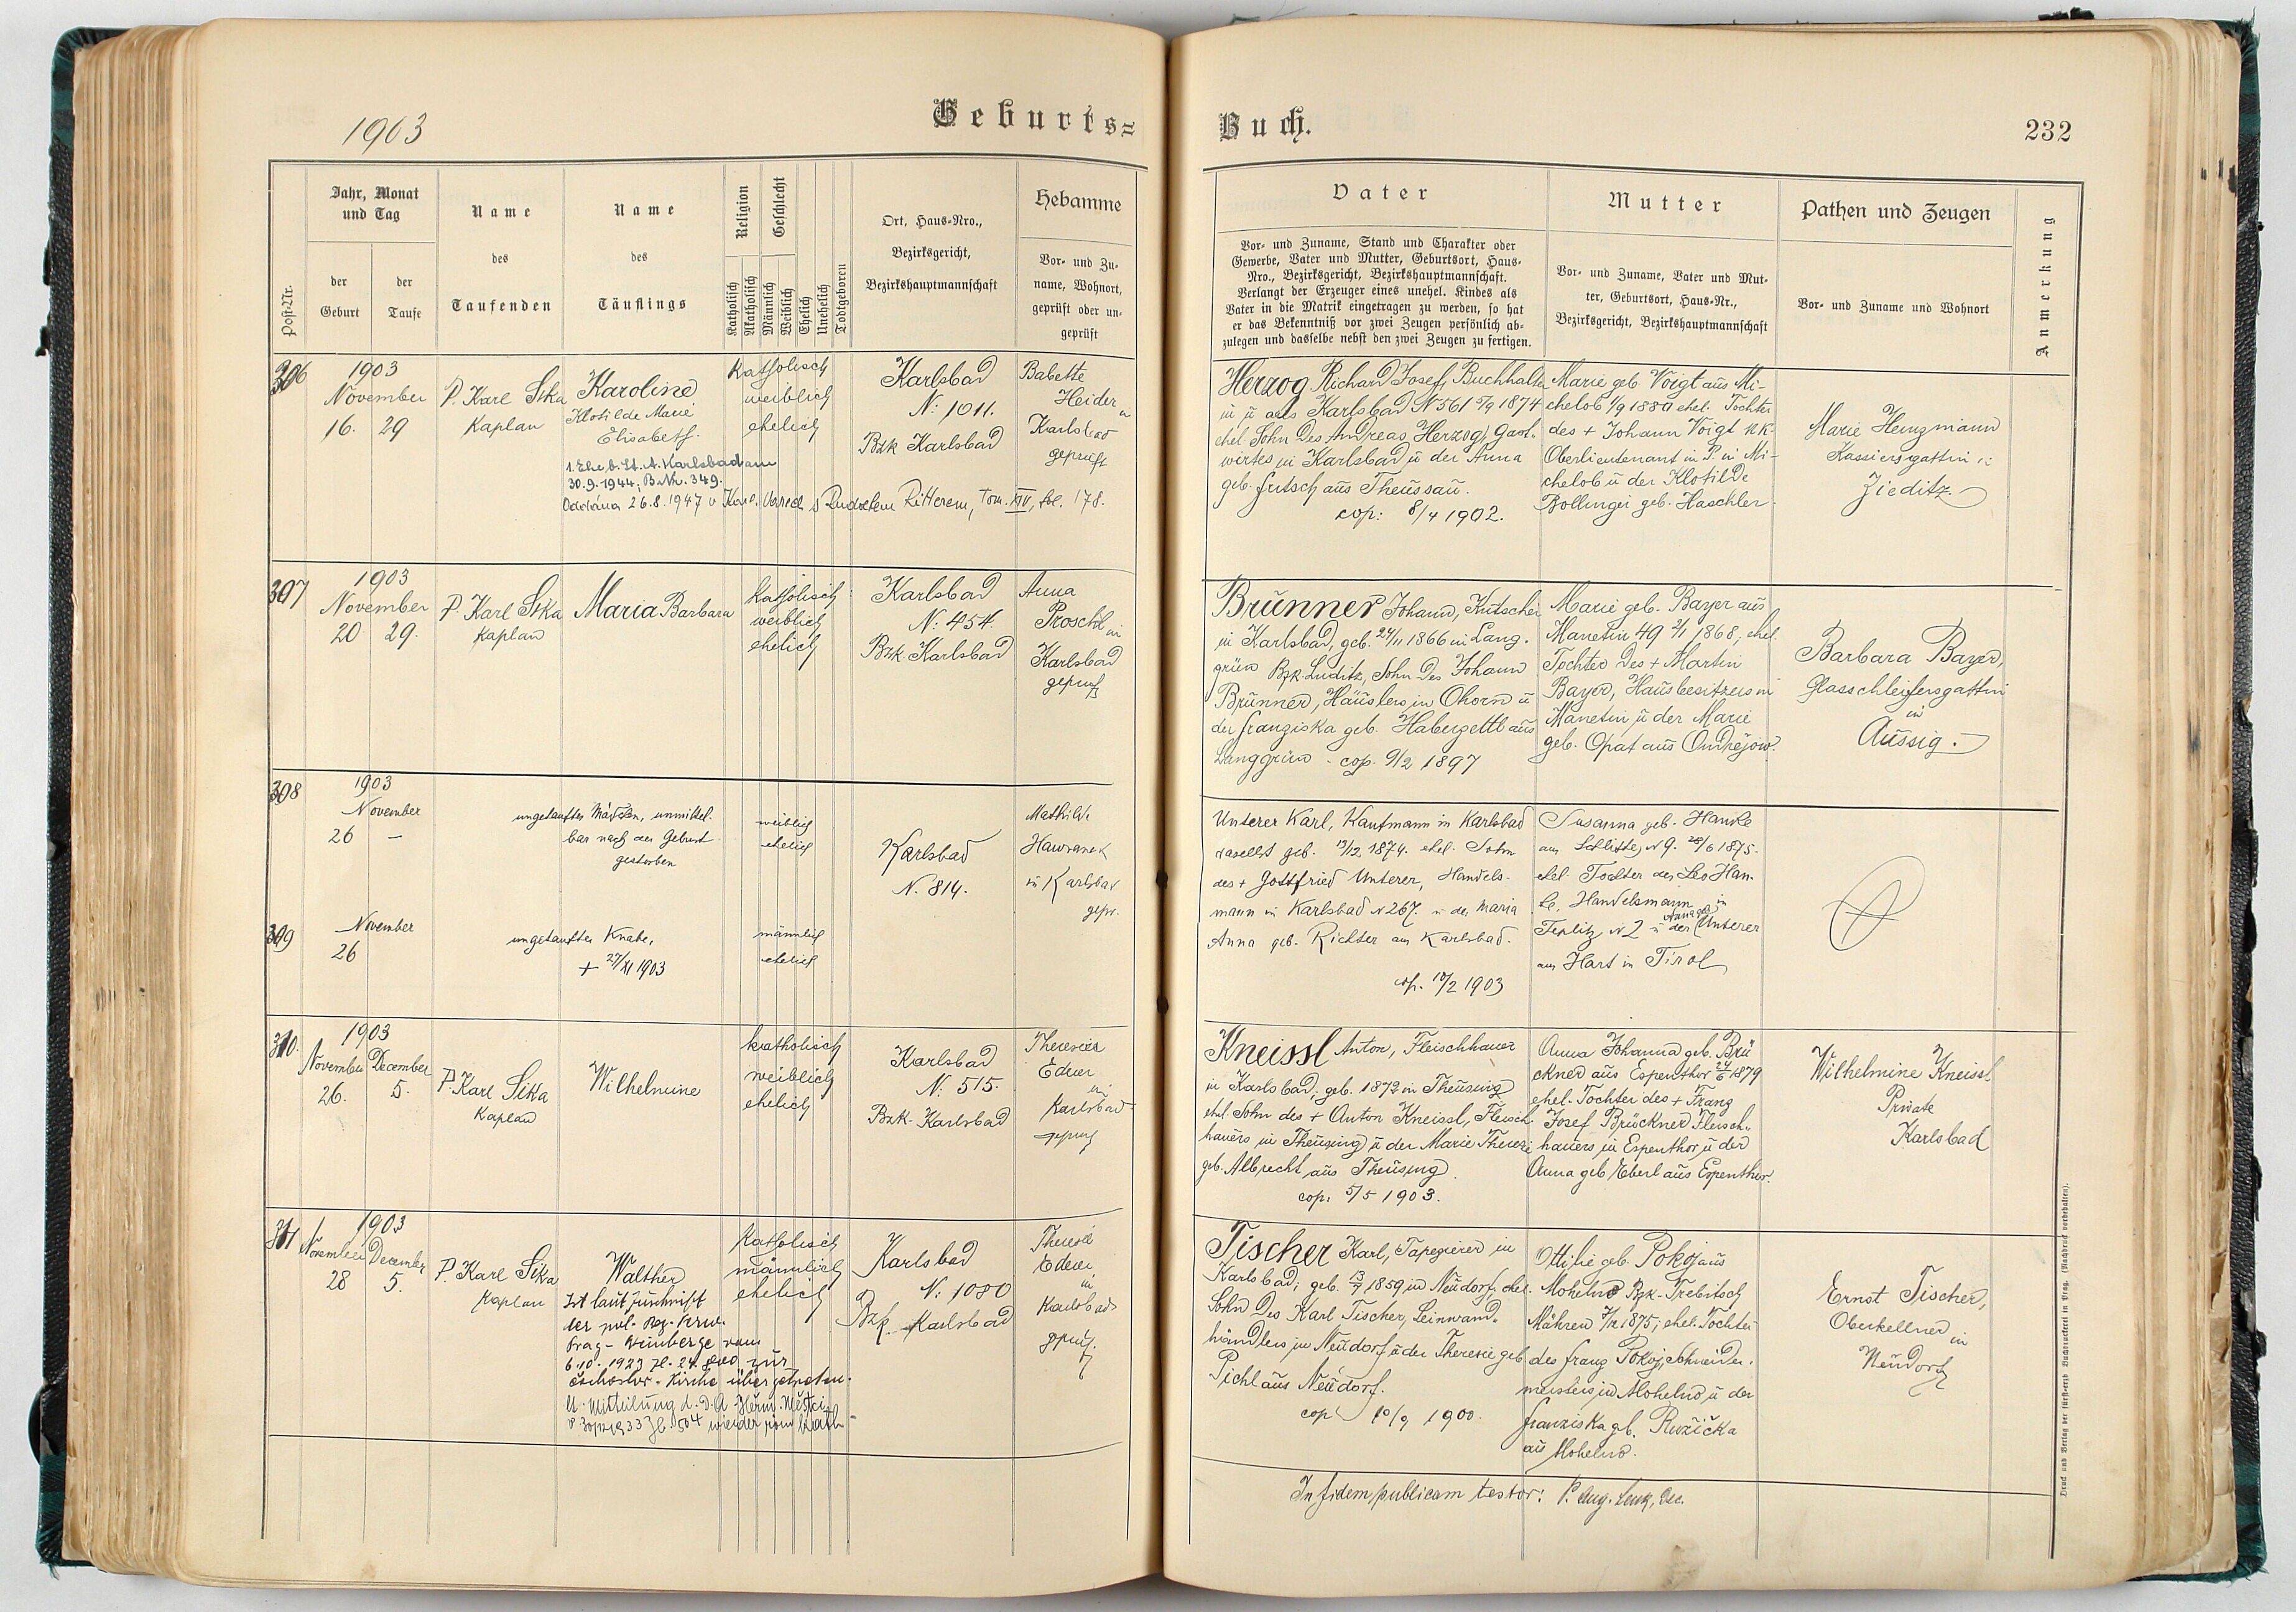 1903
Geburts=
Post-Nr.
Jahr, Monat
und Tag
der
Geburt
der
Taufe
Name
des
Taufenden
Name
des
Täuflings
Religion
Geschlecht
Katholisch
Akatholisch
Männlich
Weiblich
Ehelich
Unehelich
Todtgeboren
Ort, Haus-Nro.,
Bezirksgericht,
Bezirkshauptmannschaft
Hebamme
Vor- und Zu-
name, Wohnort,
geprüft oder un-
geprüft
306
1903
November
16. 29
P. Karl Sika
Kaplan
Karoline
Klotilde Marie
Elisabeth.
1. Ehe b. St. A. Karlsbad am
30.9.1944; B. Nr. 349.
26.8.1947 Tom. XIV, fol. 178.
katholisch
weiblich
ehelich
Karlsbad
N: 1011.
Bzk Karlsbad
Babette
Heider
in
Karlsbad
geprüft
307
1903
November
20 29.
P. Karl Sika
Kaplan
Maria Barbara
katholisch
weiblich
ehelich
Karlsbad
N: 454
Bzk. Karlsbad
Anna
Proschl
in
Karlsbad
geprüft
308
1903
November
26 —
ungetauftes Mädchen, unmittel-
bar nach der Geburt
gestorben
weiblich
ehelich
Karlsbad
N. 814.
Mathilde
Hawranek
in Karlsbad
gepr.
309
November
26
ungetaufter Knabe,
+ 27/XI 1903
männlich
ehelich
310.
1903
November December
26. 5.
P. Karl Sika
Kaplan
Wilhelmine
katholisch
weiblich
ehelich
Karlsbad
N: 515.
Bzk. Karlsbad
Theresia
Ederer
in
Karlsbad
geprüf
311
1903
November December
28 5.
P. Karl Sika
Kaplan
Walther
Ist laut Zuschrift
der pol. Bez. Verw.
Prag - Weinberge vom
6.10. 1923 Zl. 24. zur
čechoslov. Kirche übergetreten.
Mitteilung d. D. A.
1933 Zl. 504 wieder röm kath
katholisch
männlich
ehelich
Karlsbad
N: 1080
Bzk. Karlsbad
Theresia
Ederer
in
Karlsbad
geprüf.
Buch.
232
Vater
Vor- und Zuname, Stand und Charakter oder
Gewerbe, Vater und Mutter, Geburtsort, Haus-
Nro., Bezirksgericht, Bezirkshauptmannschaft.
Verlangt der Erzeuger eines unehel. Kindes als
Vater in die Matrik eingetragen zu werden, so hat
er das Bekenntniß vor zwei Zeugen persönlich ab-
zulegen und dasselbe nebst den zwei Zeugen zu fertigen.
Mutter
Vor- und Zuname, Vater und Mut-
ter, Geburtsort, Haus-Nr.,
Bezirksgericht, Bezirkshauptmannschaft
Pathen und Zeugen
Vor- und Zuname und Wohnort
Anmerkung
Herzog Richard Josef, Buchhalter
in u aus Karlsbad N 561 5/9 1874
ehel. Sohn des Andreas Herzog, Gast-
wirtes in Karlsbad u der Anna
geb. Fritsch aus Theussau.
cop: 8/4 1902.
Marie geb. Voigt aus Mi-
chelob 1/9 1880 ehel. Tochter
des + Johann Voigt k.k.
Oberlieutenant in P. in Mi-
chelob u der Klotilde
Bollinger geb. Haschler.
Marie Heinzmann
Kassiersgattin in
Zieditz.
Brünner Johann, Kutscher
in Karlsbad, geb. 24/11 1866 in Lang-
grün Bzk. Luditz, Sohn des Johann
Brünner, Häuslers in Ohorn u
der Franziska geb. Habergettl aus
Langgrün - cop. 9/2 1897
Marie geb. Bayer aus
Manetin 49 2/1 1868, ehel.
Tochter des + Martin
Bayer, Hausbesitzers in
Manetin u der Marie
geb. Opat aus Ondřejow.
Barbara Bayer,
Glasschleifersgattin
in
Aussig.
Unterer Karl, Kaufmann in Karlsbad
daselbst geb. 13/12 1874. ehel. Sohn
des + Gottfried Unterer, Handels-
mann in Karlsbad N 267. u der Maria
Anna geb. Richter aus Karlsbad.
cop. 10/2 1903
Susanna geb. Hanke
aus Schlitte, N 9. 28/6 1875.
ehel. Tochter des Leo Han-
ke, Handelsmann in
Teplitz N 2 u der Anna geb. Unterer
aus Hart in Tirol
Kneissl Anton, Fleischhauer
in Karlsbad, geb. 1872 in Theusing
ehel. Sohn des + Anton Kneissl, Fleisch-
hauers in Theusing u der Marie
geb. Albrecht aus Theusing.
cop: 5/5 1903.
Anna Johanna geb. Brü-
ckner aus Espenthor 24/6 1879
ehel. Tochter des + Franz
Josef Brückner Fleisch-
hauers in Espenthor u der
Anna geb Eberl aus Espenthor.
Wilhelmine Kneissl
Private
Karlsbad
Tischer Karl, Tapezierer in
Karlsbad, geb. 13/7 1859 in Neudorf, ehel.
Sohn des Karl Tischer, Leinwand-
händlers in Neudorf u der Theresie geb
Pichl aus Neudorf.
cop 10/9 1900.
Ottilie geb. Pokoj aus
Mohelno Bzk. Trebitsch
Mähren 1875; ehel. Tochter
des Franz Pokoj, Schneider-
meisters in Mohelno u der
Franziska gb. Ružička
aus Mohelno.
Ernst Tischer,
Oberkellner
in
Neudorf
In fidem publicam testor: P. Aug. Lenk, Dec.
Druck und Verlag der fürst-erzb. Buchdruckerei in Prag. (Nachdruck vorbehalten).